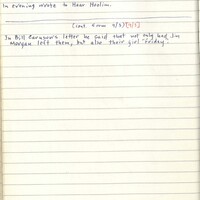 In evening wrote to Hear Muslim.
(cont. from 9/3)[9/5]
In Bill Zavatsky's letter he said that not only had Jim
Morgan left them, but also their girl friday.